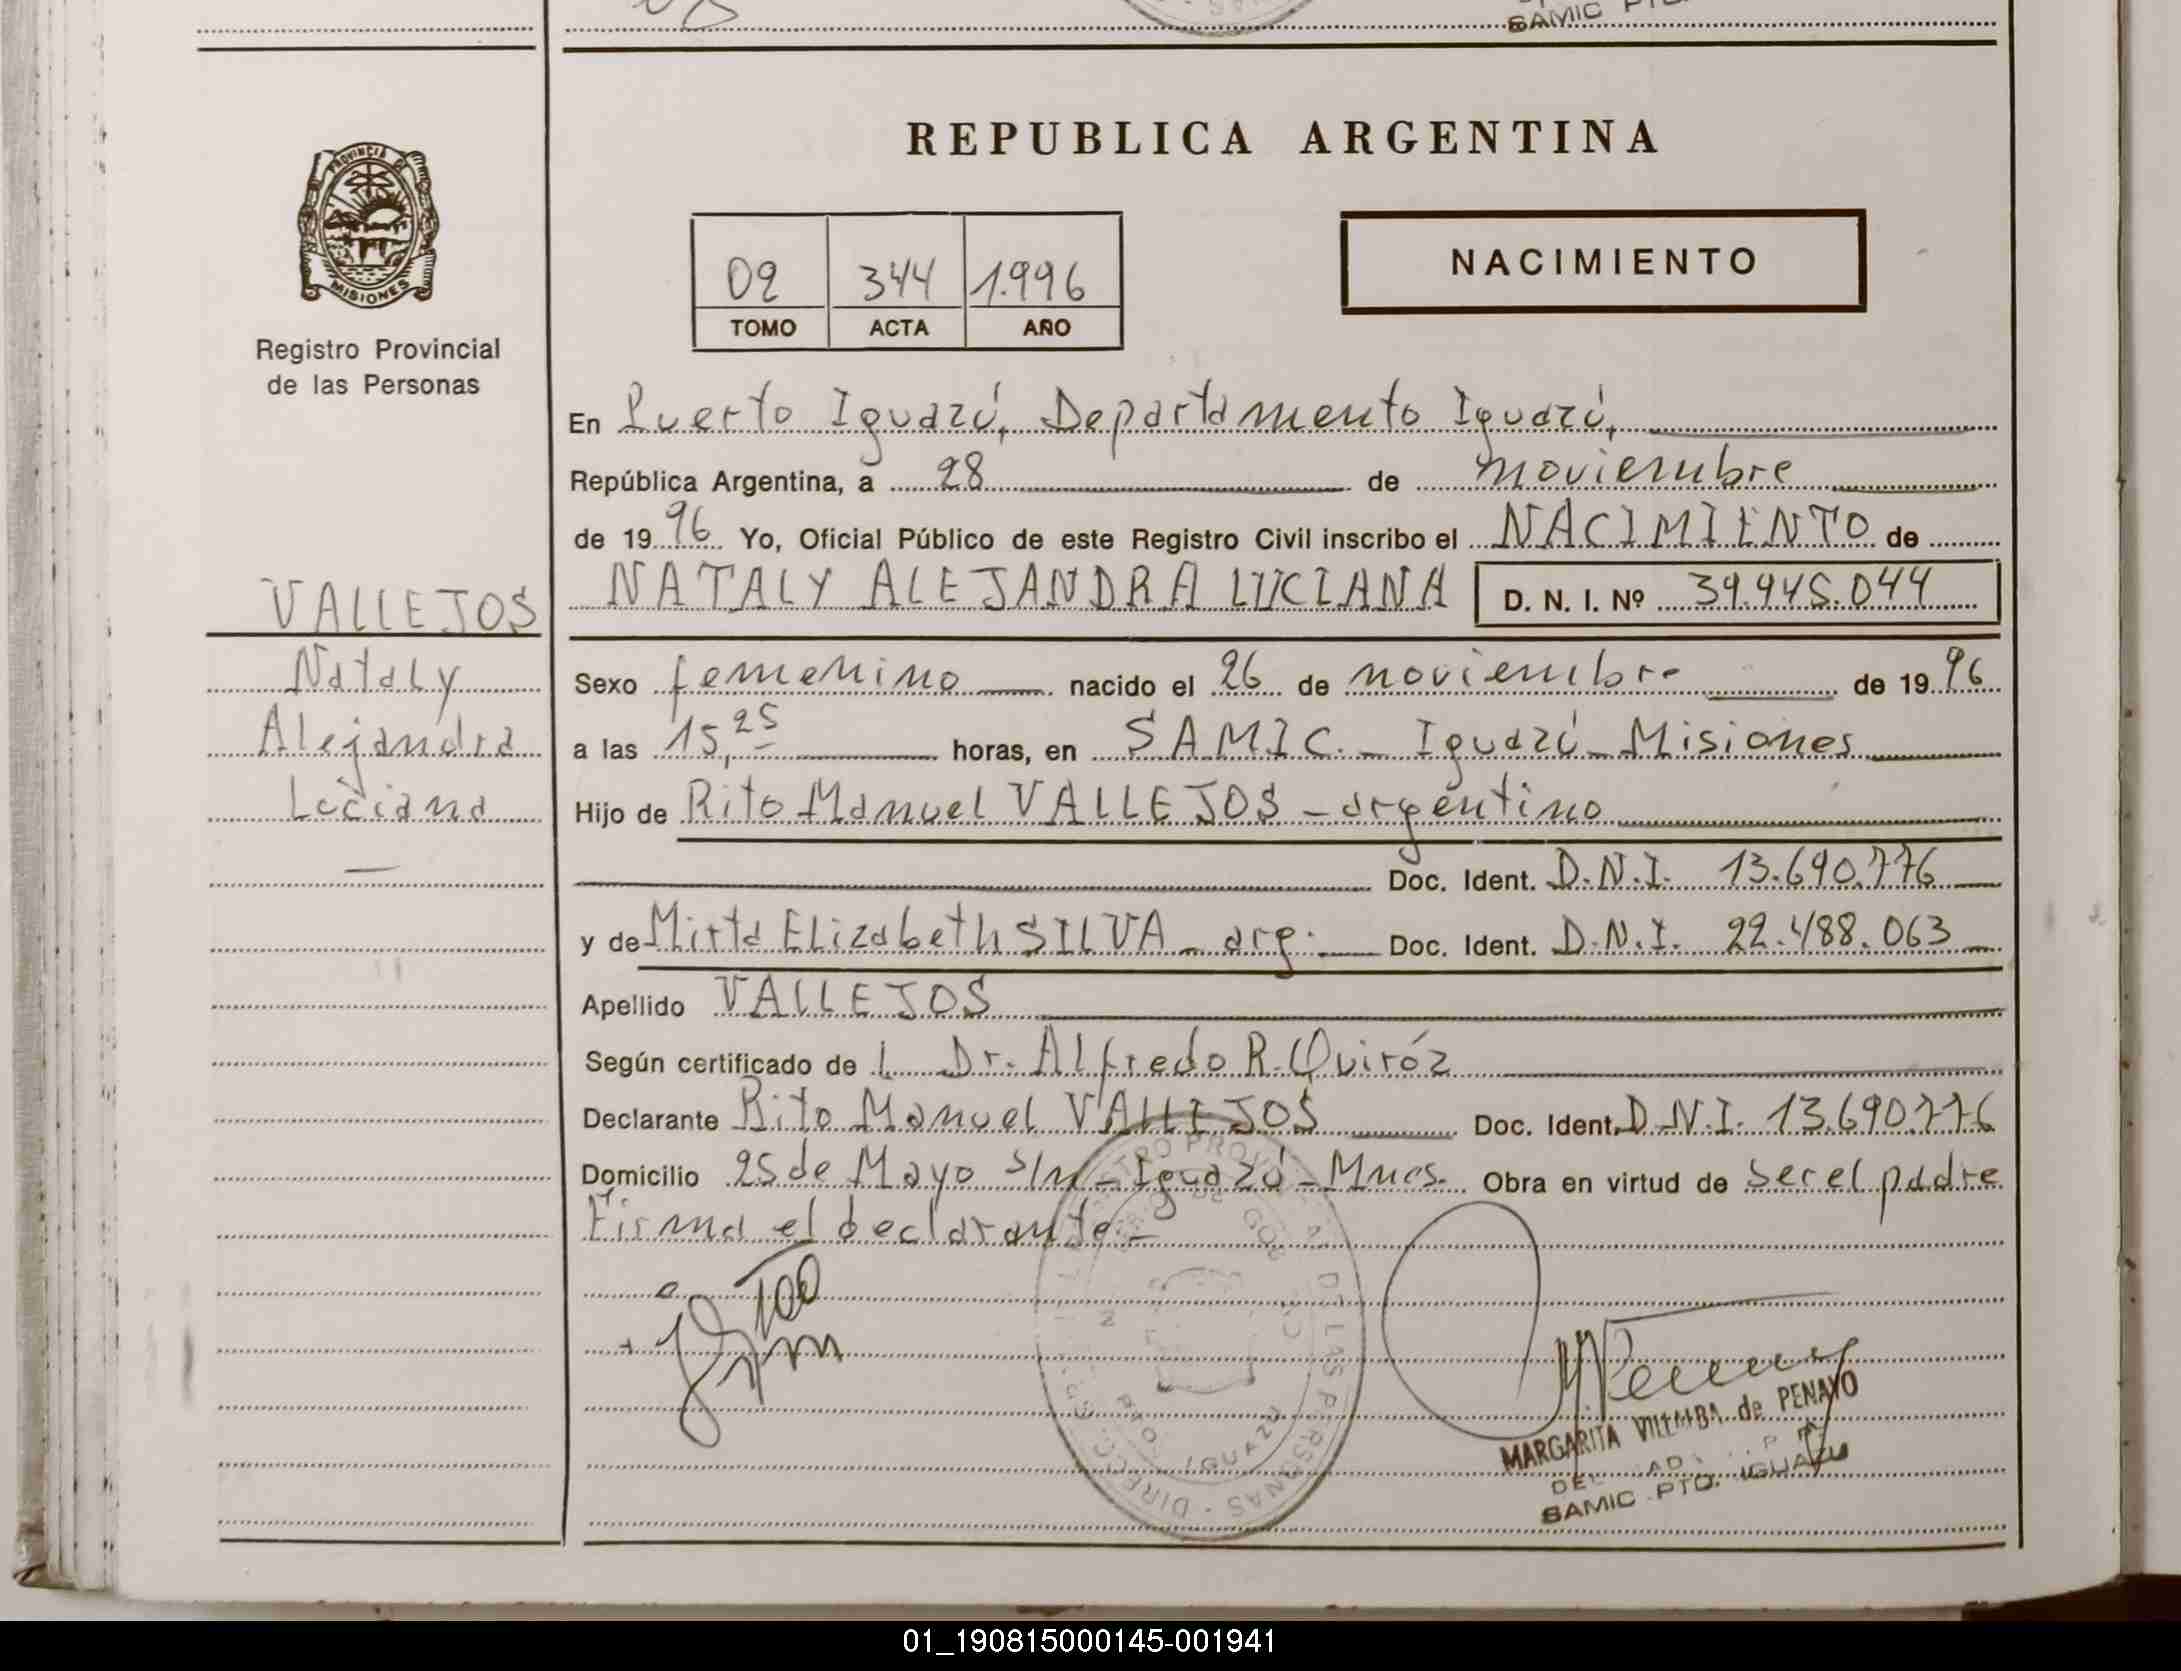 SAMIC PTO.
REPUBLICA ARGENTINA
PROVINCIA DE
MISIONES
Registro Provincial
de las Personas
02 344 1.996
TOMO ACTA AÑO
NACIMIENTO
En Puerto Iguazú, Departamento Iguazú,
República Argentina, a 28 de noviembre
de 1996 Yo, Oficial Público de este Registro Civil inscribo el NACIMIENTO de
NATALY ALEJANDRA LUCIANA D. N. I. Nº 39.945.044
VALLEJOS
Nataly
Alejandra
Luciana
Sexo femenino nacido el 26 de noviembre de 1996
a las 15,25 horas, en SAMIC. - Iguazú - Misiones
Hijo de Rito Manuel VALLEJOS - argentino
Doc. Ident. D.N.I. 13.690.776
y de Mirta Elizabeth SILVA - arg. Doc. Ident. D.N.I. 22.488.063
Apellido VALLEJOS
Según certificado de l Dr. Alfredo R. Quiróz
Declarante Rito Manuel VALLEJOS Doc. Ident. D.N.I. 13.690.776
Domicilio 25 de Mayo S/n - Iguazú - Mnes. Obra en virtud de ser el padre
Firma el declarante -
MARGARITA VILLALBA de PENAYO
SAMIC PTO. IGUAZU
01_190815000145-001941